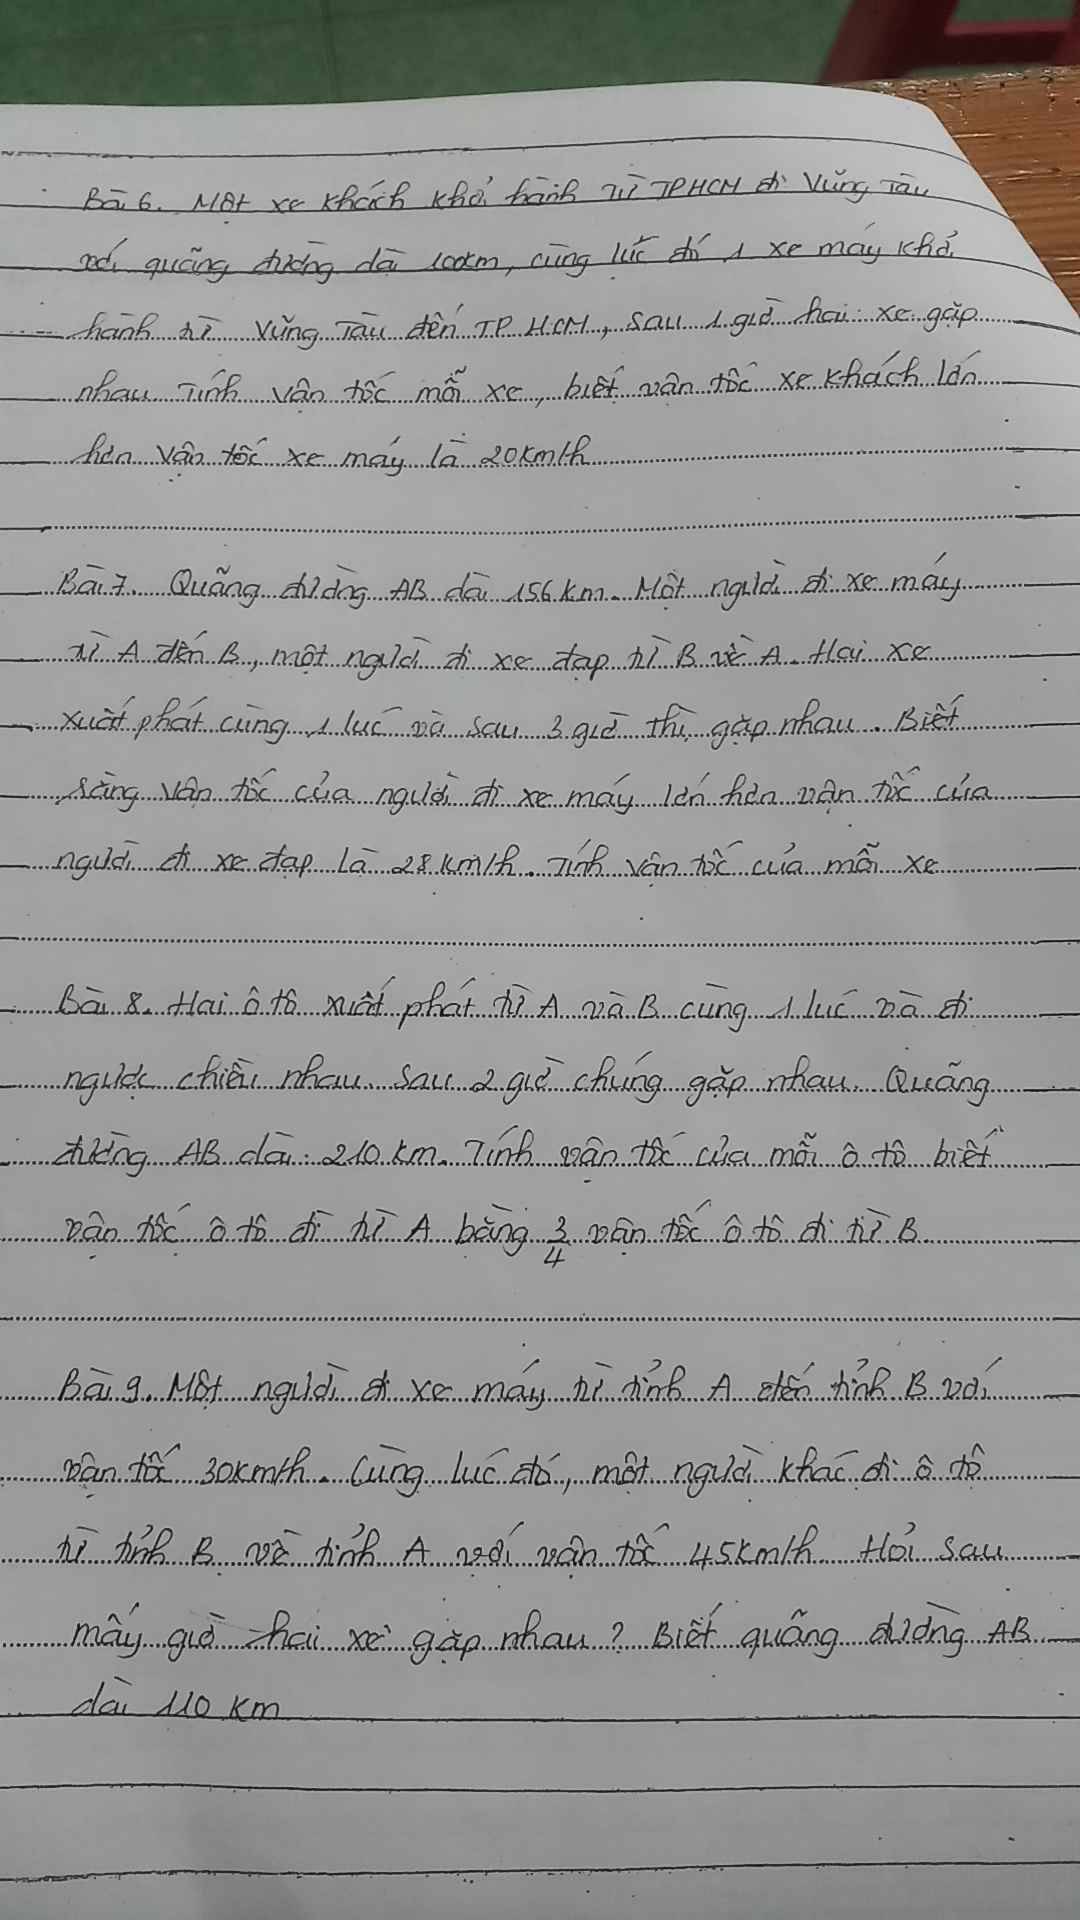 Bài 6. Một xe khách khởi hành từ TPHCM đi Vũng Tàu
với quãng đường dài 100km, cùng lúc đó 1 xe máy khởi
hành từ Vũng Tàu đến TP.HCM, sau 1 giờ hai xe gặp
nhau. Tính vận tốc mỗi xe, biết vận tốc xe khách lớn
hơn vận tốc xe máy là 20km/h
Bài 7. Quãng đường AB dài 156 km. Một người đi xe máy
từ A đến B, một người đi xe đạp từ B về A. Hai xe
xuất phát cùng 1 lúc và sau 3 giờ thì gặp nhau. Biết
rằng vận tốc của người đi xe máy lớn hơn vận tốc của
người đi xe đạp là 28 km/h. Tính vận tốc của mỗi xe
Bài 8. Hai ô tô xuất phát từ A và B cùng 1 lúc và đi
ngược chiều nhau. Sau 2 giờ chúng gặp nhau. Quãng
đường AB dài 210 km. Tính vận tốc của mỗi ô tô biết
vận tốc ô tô đi từ A bằng 3/4 vận tốc ô tô đi từ B.
Bài 9. Một người đi xe máy từ tỉnh A đến tỉnh B với
vận tốc 30km/h. Cùng lúc đó, một người khác đi ô tô
từ tỉnh B về tỉnh A với vận tốc 45km/h. Hỏi sau
mấy giờ hai xe gặp nhau? Biết quãng đường AB
dài 110 km